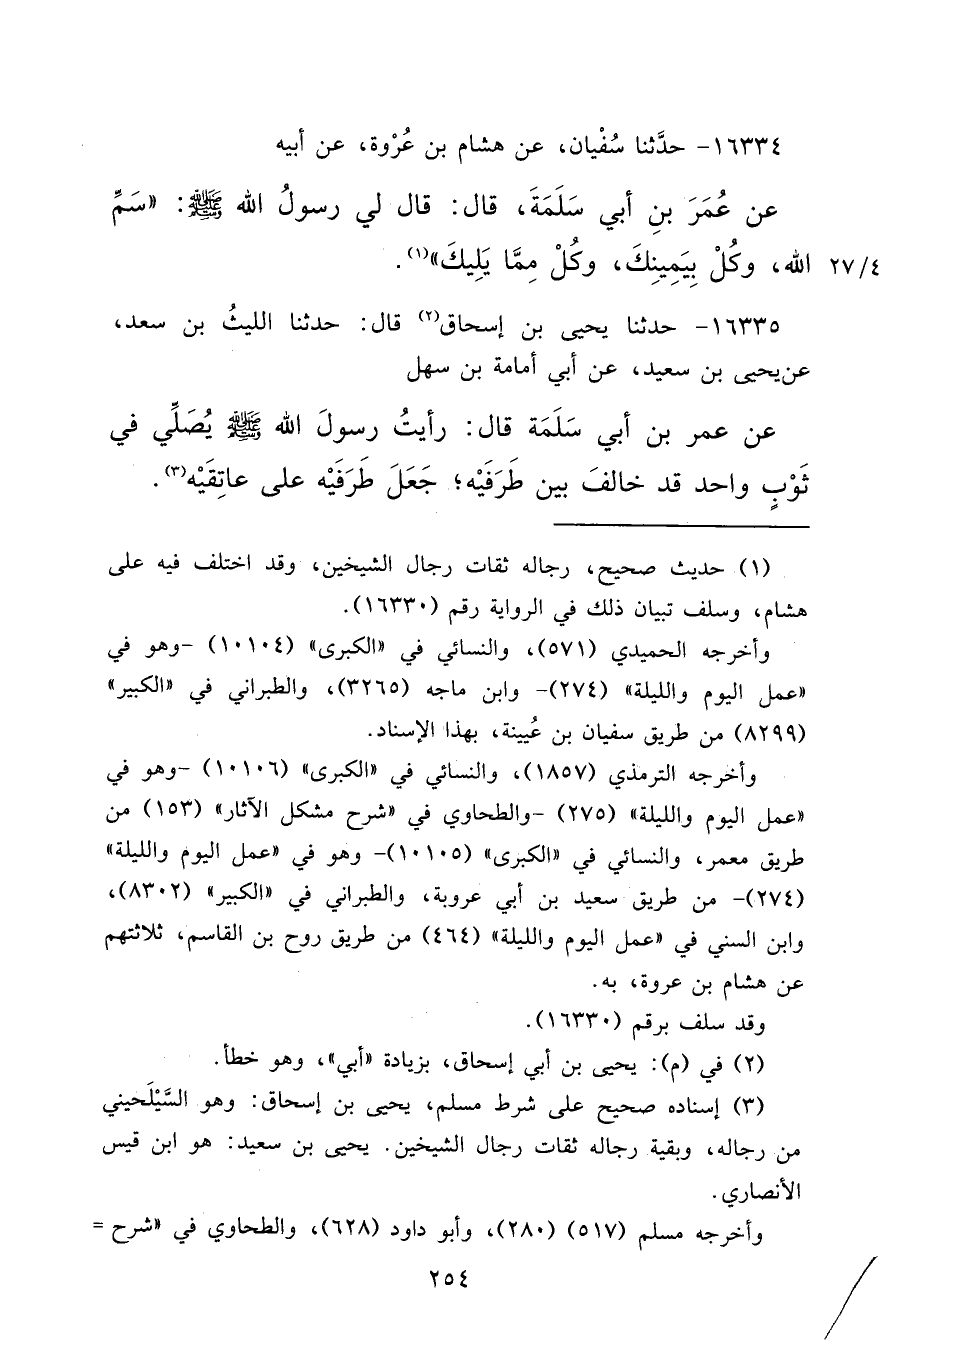 ١٦٣٣٤- حدَّثنا سُفْيان، عن هشام بن عُرْوة، عن أبيه
عن عُمَرَ بنِ أبي سَلَمَةَ، قال: قال لي رسولُ الله ﷺ: «سَمِّ
الله، وكُلْ بِيَمِينِكَ، وكُلْ مِمَّا يَلِيكَ»(١). ٢٧/٤
١٦٣٣٥- حدثنا يحيى بن إسحاق(٢) قال: حدثنا الليثُ بن سعد،
عن يحيى بن سعيد، عن أبي أمامة بن سهل
عن عمر بن أبي سَلَمَة قال: رأيتُ رسولَ الله ﷺ يُصَلِّي في
ثَوْبٍ واحد قد خالفَ بين طَرَفَيْه؛ جَعَلَ طَرَفَيْه على عاتِقَيْه(٣).
(١) حديث صحيح، رجاله ثقات رجال الشيخين، وقد اختلف فيه على
هشام، وسلف تبيان ذلك في الرواية رقم (١٦٣٣٠).
وأخرجه الحميدي (٥٧١)، والنسائي في «الكبرى» (١٠١٠٤) -وهو في
«عمل اليوم والليلة» (٢٧٤)- وابن ماجه (٣٢٦٥)، والطبراني في «الكبير»
(٨٢٩٩) من طريق سفيان بن عُيينة، بهذا الإسناد.
وأخرجه الترمذي (١٨٥٧)، والنسائي في «الكبرى» (١٠١٠٦) -وهو في
«عمل اليوم والليلة» (٢٧٥) -والطحاوي في «شرح مشكل الآثار» (١٥٣) من
طريق معمر، والنسائي في «الكبرى» (١٠١٠٥)- وهو في «عمل اليوم والليلة»
(٢٧٤)- من طريق سعيد بن أبي عروبة، والطبراني في «الكبير» (٨٣٠٢)،
وابن السني في «عمل اليوم والليلة» (٤٦٤) من طريق روح بن القاسم، ثلاثتهم
عن هشام بن عروة، به.
وقد سلف برقم (١٦٣٣٠).
(٢) في (م): يحيى بن أبي إسحاق، بزيادة «أبي»، وهو خطأ.
(٣) إسناده صحيح على شرط مسلم، يحيى بن إسحاق: وهو السَّيْلَحيني
من رجاله، وبقية رجاله ثقات رجال الشيخين. يحيى بن سعيد: هو ابن قيس
الأنصاري.
وأخرجه مسلم (٥١٧) (٢٨٠)، وأبو داود (٦٢٨)، والطحاوي في «شرح =
٢٥٤